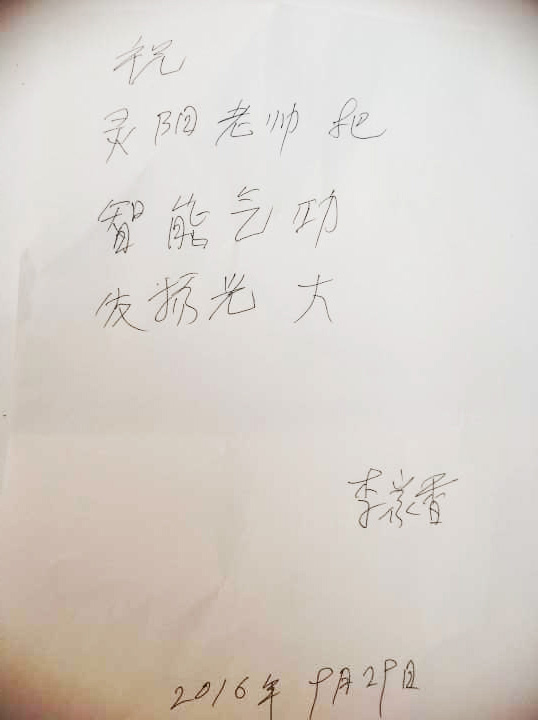 祝
灵阳老师把
智能气功
发扬光大
李家香
2016年9月29日